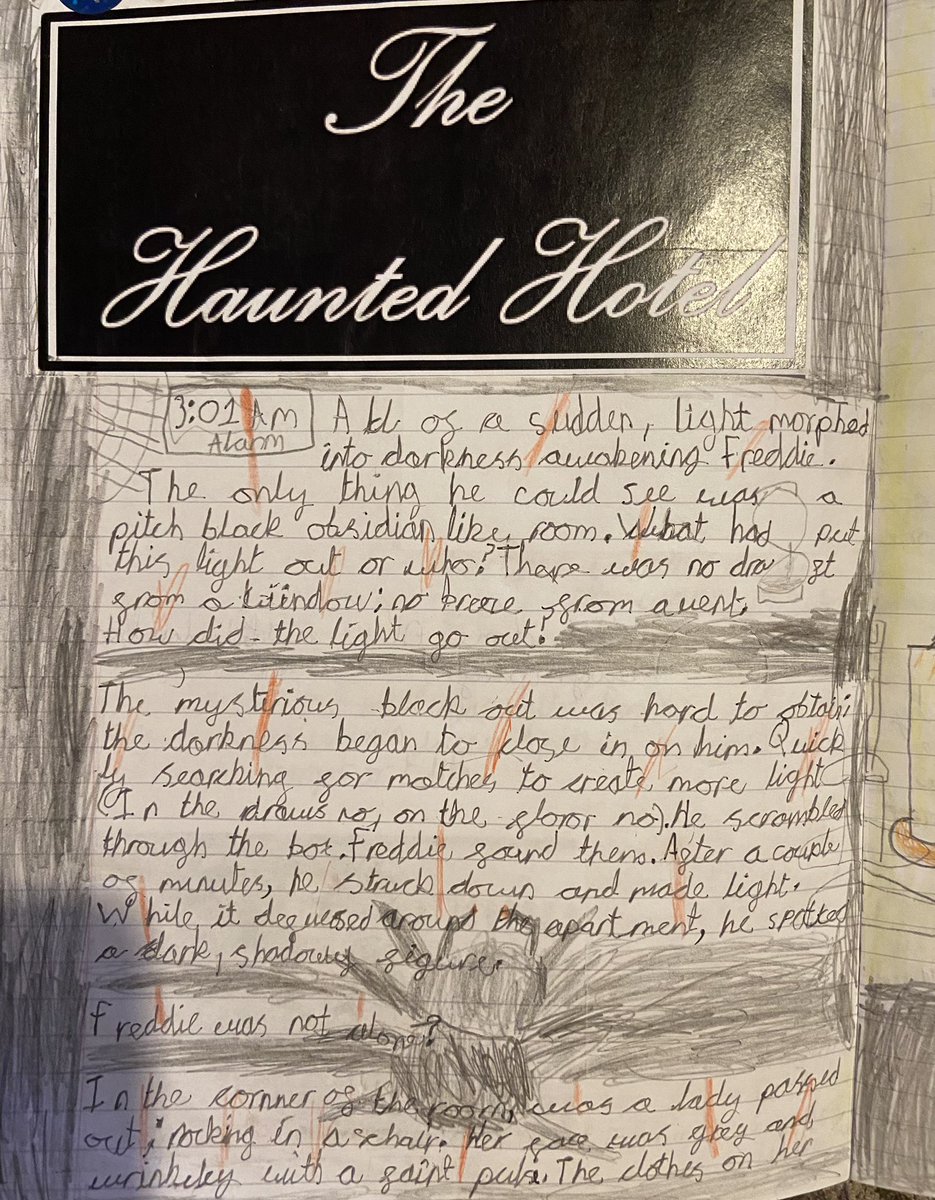 The
Haunted Hotel
3:01 AM
Alarm
All of a sudden, light morphed
into darkness awakening Freddie.
The only thing he could see was a
pitch black obsidian like room. What had put
this light out or who? There was no dra ft
from a window; no from a vent.
How did the light go out?
The mysterious black out was hard to obtain;
the darkness began to close in on him. Quick
ly searching for matches to create more light
(In the draws no, on the floor no). He scrambled
through the box. Freddie found them. After a couple
of minutes, he struck down and made light.
While it around the apartment, he spotted
a dark, shadowy figure.
Freddie was not alone?
In the cornner of the room, was a lady passed
out; rocking in a chair. Her face was grey and
wrinkley with a faint pulse. The clothes on her